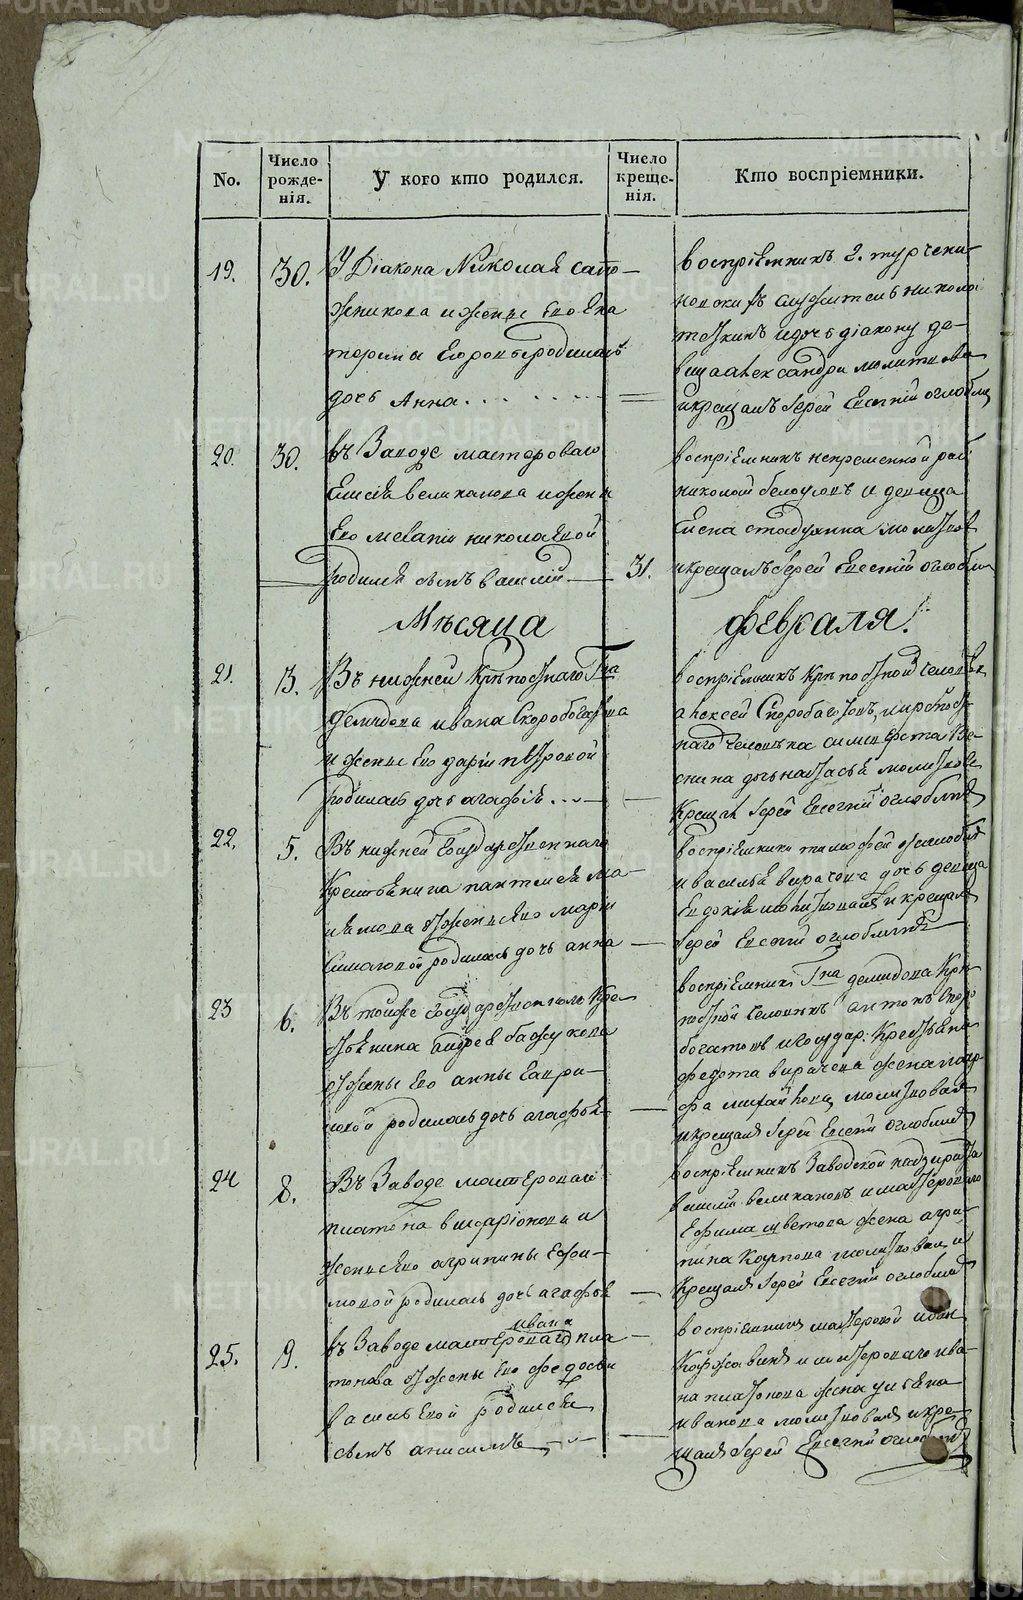 No.
Число рожденія.
У кого кто родился.
Число крещенія.
Кто воспріемники.
19.
30.
У Діакона Николая Сапо-
жникова и жены Его Ека
терины Егоровы родилась
дочь Анна
воспріемникъ г. турчени-
новскихъ служитель никола
и дочь діакону де-
вица александра молитвова
и крещалъ Іерей Евсегній оглобли
20.
30.
въ Заводе мастероваго
Елисея великанова и жены
Его меланіи николаевой
родился сынъ василій
31.
воспріемникъ непременной раб
николай белоусовъ и девица
Елена молитвов
и крещалъ Іерей Евсегній оглобли
Мѣсяца
февраля.
21.
3.
Въ нижней Крѣпостнаго Гна
Демидова ивана Скоробогатова
и жены Его даріи петровой
родилась дочь агафія
воспріемникъ крѣпостной человѣк
алексей Скоробагатовъ, и крѣпост
наго человѣка
дочь настасья молитвов
Крещал Іерей Евсегній оглоблинъ
22.
5.
Въ нижней Государственнаго
Крестьянина пантелея ма-
и жены Его марьи
родилась дочь анна
воспріемники тимофей
и василья вирачева дочь девица
Евдокія молитвовалъ и крещалъ
Іерей Евсегній оглоблинъ
23
6.
Въ тойже Государственнаго Кре-
стьянина андрея бажукова
и жены Его анны Гаври-
ловой родилась дочь агафья
воспріемники Гна демидова Крѣ-
постной человекъ антонъ Скоро
богатовъ и Государ: Крестьяни
федота вирачева жена мар-
фа михайлова, молитвовалъ
и крещалъ Іерей Евсегній оглоблинъ
24
8.
Въ Заводе мастероваго
платона виссаріонова и
жены Его агрипины Ефи-
мовой родилась дочь агафья
воспріемникъ Заводской надзирате
василій великановъ и мастероваго
Ефима цветова жена агри-
пина Карпова молитвовал и
Крещалъ Іерей Евсегній оглоблин
25.
9.
ивана
въ Заводе мастероваго пла
тонова и жены Его федосьи
васильевой родился
сынъ анисимъ
воспріемники мастеровой иван
Коржавинъ и мастероваго ива-
на платонова жена ульяна
иванова молитвовалъ и кре-
щалъ Іерей Евсегній оглоблин
METRIKI.GASO-URAL.RU